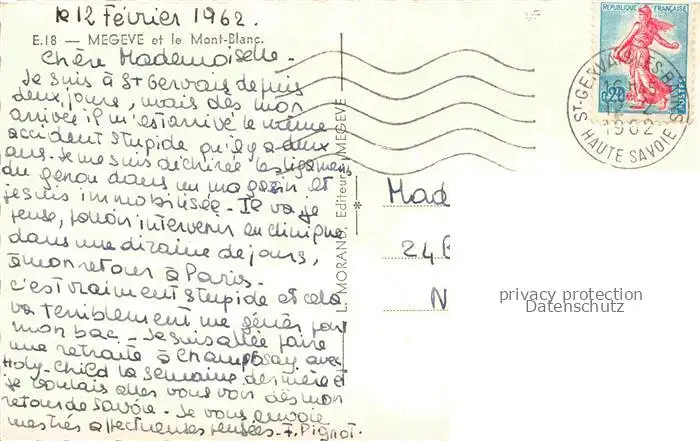 le 12 Février 1962.
E.18 — MEGEVE et le Mont-Blanc.
Chère Mademoiselle -
Je suis à St Gervais depuis
deux jours, mais dès mon
arrivée il m'est arrivé le même
accident stupide qu'il y a deux
ans. Je me suis déchirée les ligaments
du genou dans un magasin et
je suis immobilisée - Il va je
pense, falloir intervenir en clinique
dans une dizaine de jours,
à mon retour à Paris.
c'est vraiment stupide et cela
va terriblement me gêner pour
mon bac - Je suis allée faire
une retraite à Champrosay avec
Holy-Child la semaine dernière et
je voulais aller vous voir dès mon
retour de Savoie - Je vous envoie
mes très affectueuses pensées - F. Pignot.
L. MORAND, Editeur, MEGEVE
REPUBLIQUE FRANÇAISE
0,20
POSTES
ST-GERVAIS-LES-BAINS
1962
HAUTE SAVOIE
Mad
24
N
privacy protection
Datenschutz